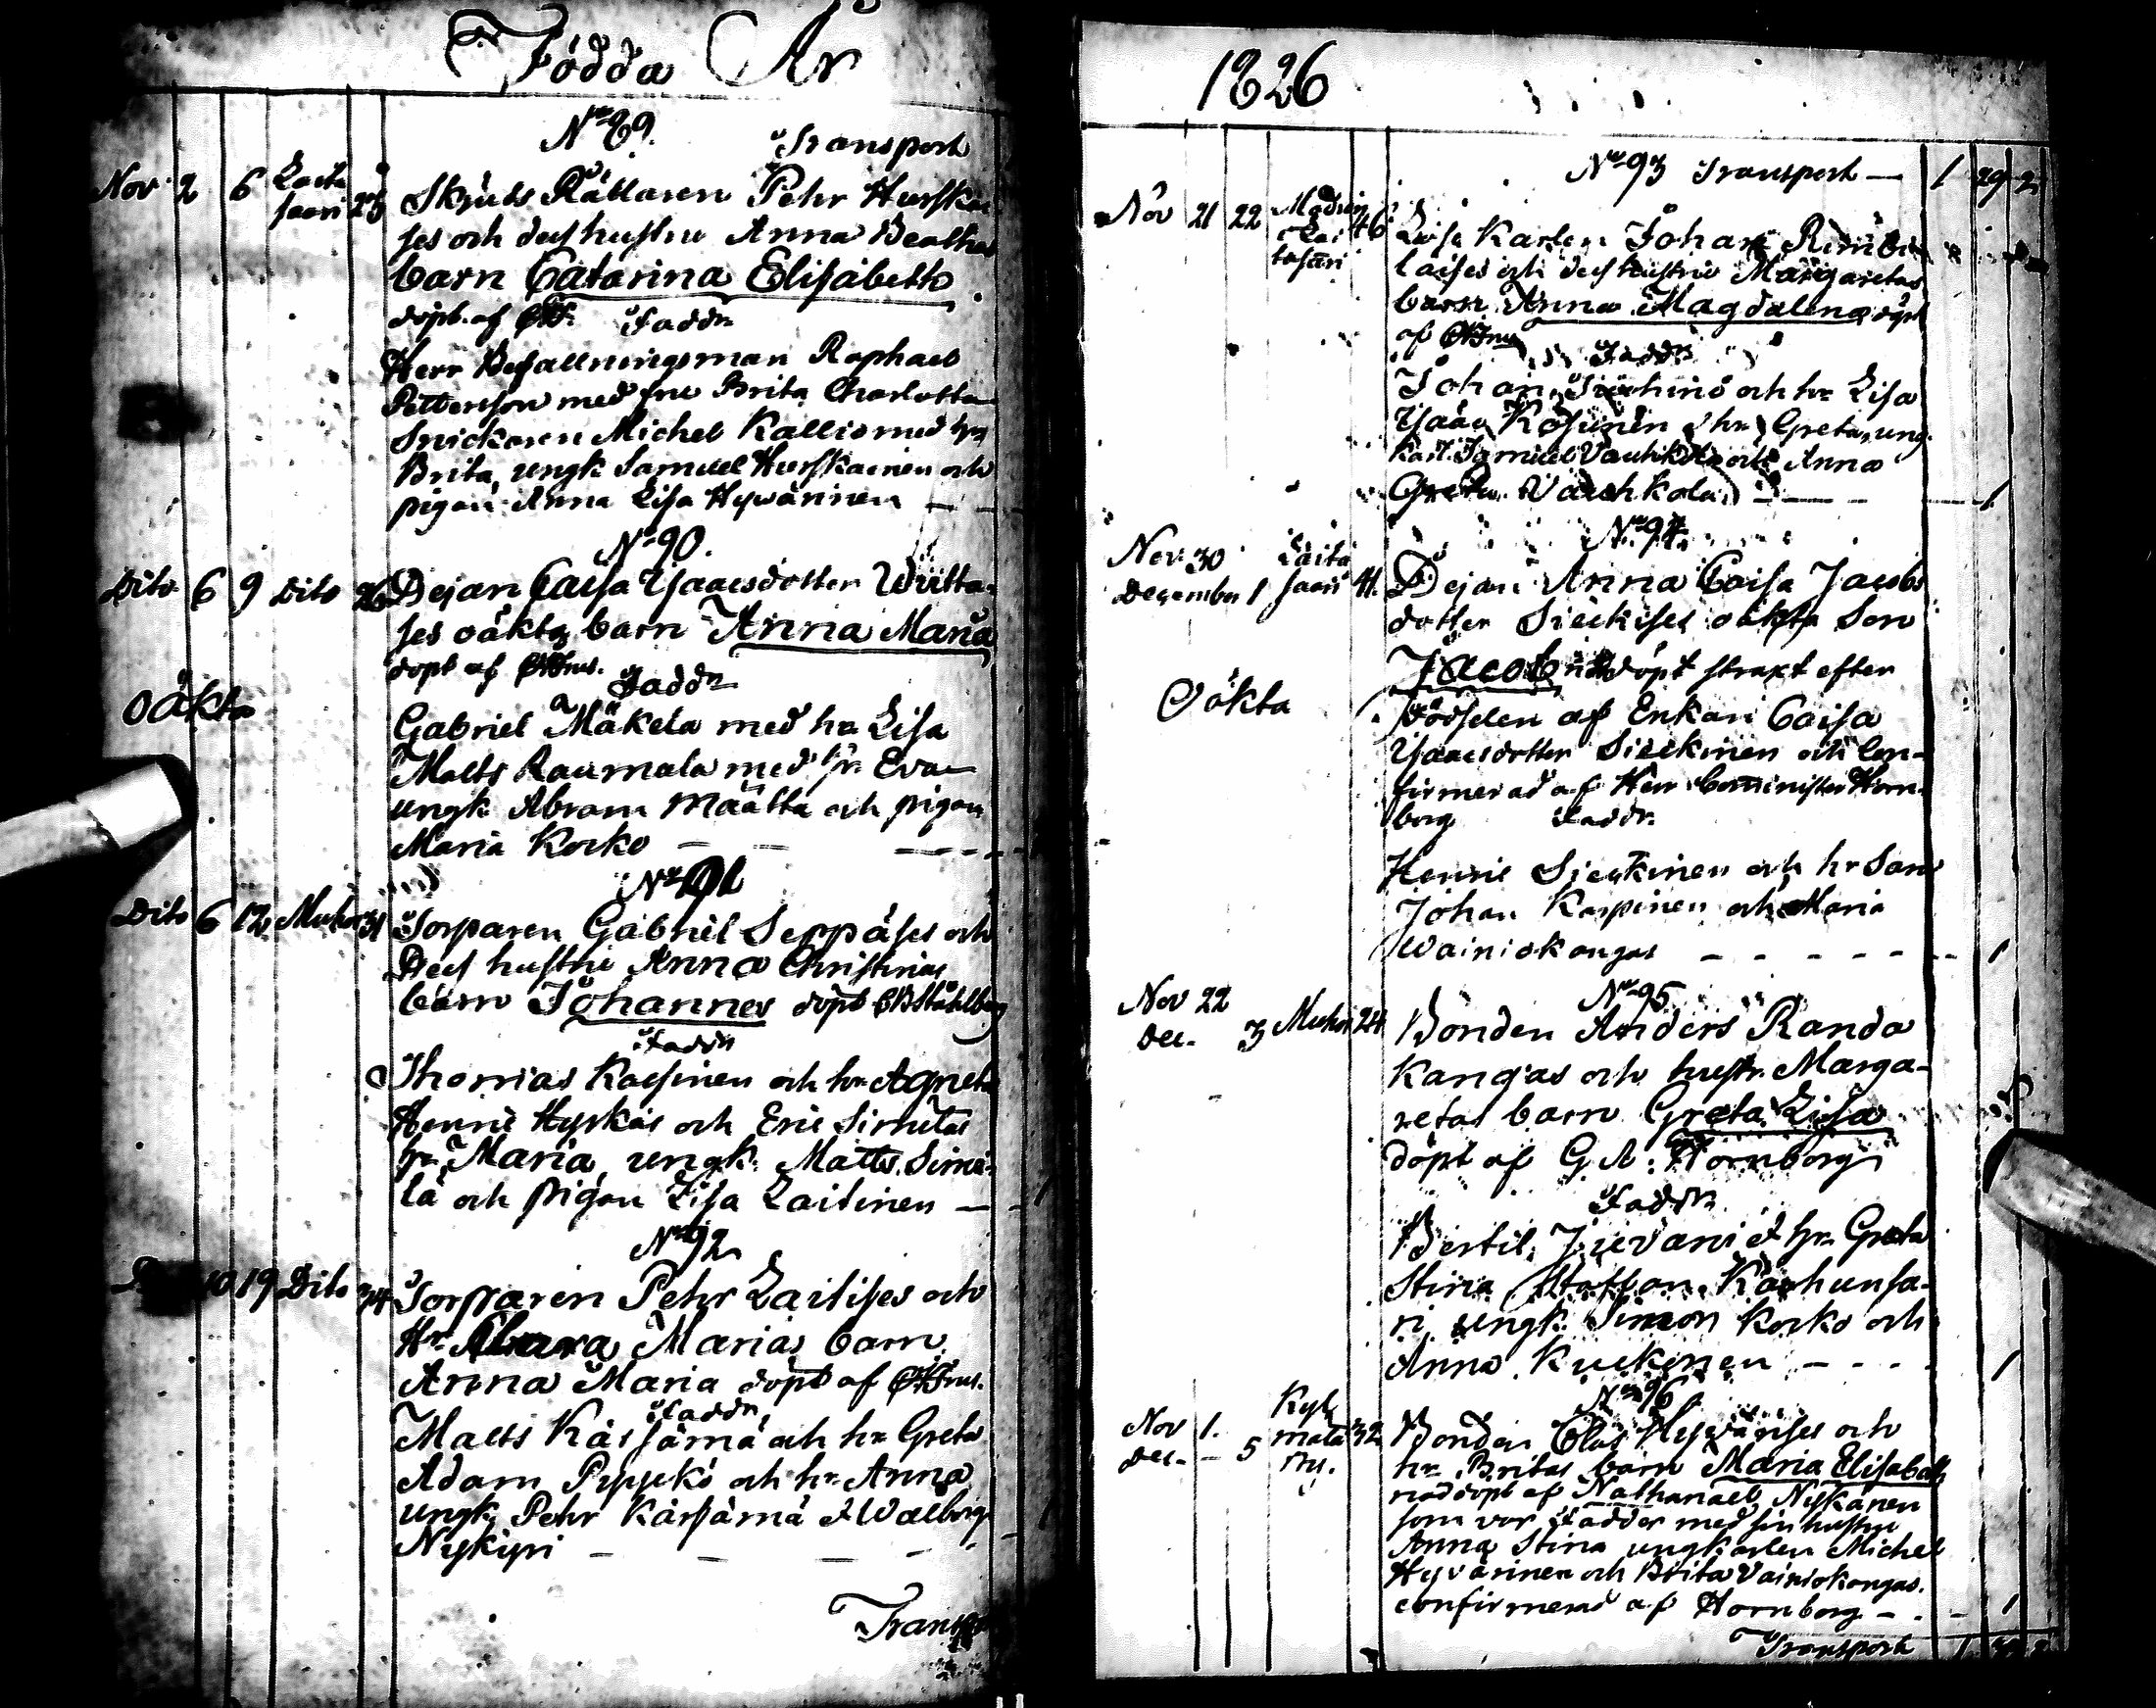 Födda År
No 89. Transport
Nov 2 6 Laita
saari 28 Skjuts Rättaren Pehr Hurskai
ses och dess hustru Anna Beathas
barn Catarina Elisabeth
döpt af Faddr
Herr Befallningsman Raphael
Pettersson med fru Brita Charlotta
Snickaren Michel Kallio med hr
Brita, ungk Samuel Hurskainen och
pigan Anna Lisa Hywärinen
No 90.
Dito 6 9 Dito 26 Dejan Caisa Isaacsdotter
ses oäkta barn Anna Maria
döpt af
Faddr
oäkta
Gabriel Mäkela med hr Lisa
Matts Raumala med hr Eva
ungk Abram Määtta och pigan
Maria Korko
No 91
Dito 6 12 Muhos 31 Torparen Gabriel Seppäses och
Dess hustru Anna Christinas
barn Johannes döpt Ståhlberg
Faddr
Thomas Kaasinen och hr Agneta
Henric Hyrkäs och Eric Similäs
hr Maria, ungk. Matts Simi-
lä och pigan Lisa Laitinen
No 92
10 19 Dito 34 Torparen Pehr Laitises och
Hr Maria's barn
Anna Maria döpt af
Faddr
Matts Kärsämä och hr Greta
Adam Pyykö och hr Anna
ungk. Pehr Kärsämä & Walborg
Nykyri
Transp
1826
No 93 Transport 1 29 2
Nov 21 22 46 Karlen Johan
laises och dess hustru Margaretas
barn Anna Magdalena döpt
af
Faddr
Johan och hr Lisa
Isaac Kosunen & hr Greta, ung
karl. Samuel och Anna
Greta 1
No 94
Nov 30 Laita
December 1 saari 41. Dejan Anna Caisa Jacobs
dotter Sieckises oäkta Son
Jacob döpt straxt efter
Oäkta födselen af Enkan Caisa
Isaacsdotter Sieckinen och Con-
firmerad af Herr Comminister Horn-
borg Faddr.
Henric Sieckinen och hr
Johan Karpinen och Maria
Wainiokangas 1
No 95
Nov 22
Dec. 3 Muhos 24 Bonden Anders Randa
kangas och hustr. Marga-
retas barn Greta Lisa
döpt af G. A: Hornborg
Faddr.
Bertil Juvani & hr Greta
Stina Staffan Karhunsa-
ri ungk. Simon Korko och
Anna Kuckonen 1
No 96
Nov 1. Kyl
Dec. 5 mälä 32
By. Bonden Olas Hyväises och
hr Britas barn Maria Elisabeth
nöddöpt af Nathanael Nykänen
som var Fadder med sin hustru
Anna Stina ungkarlen Michel
Hyvärinen och Brita Vainiokangas.
confirmerad af Hornborg 1
Transport